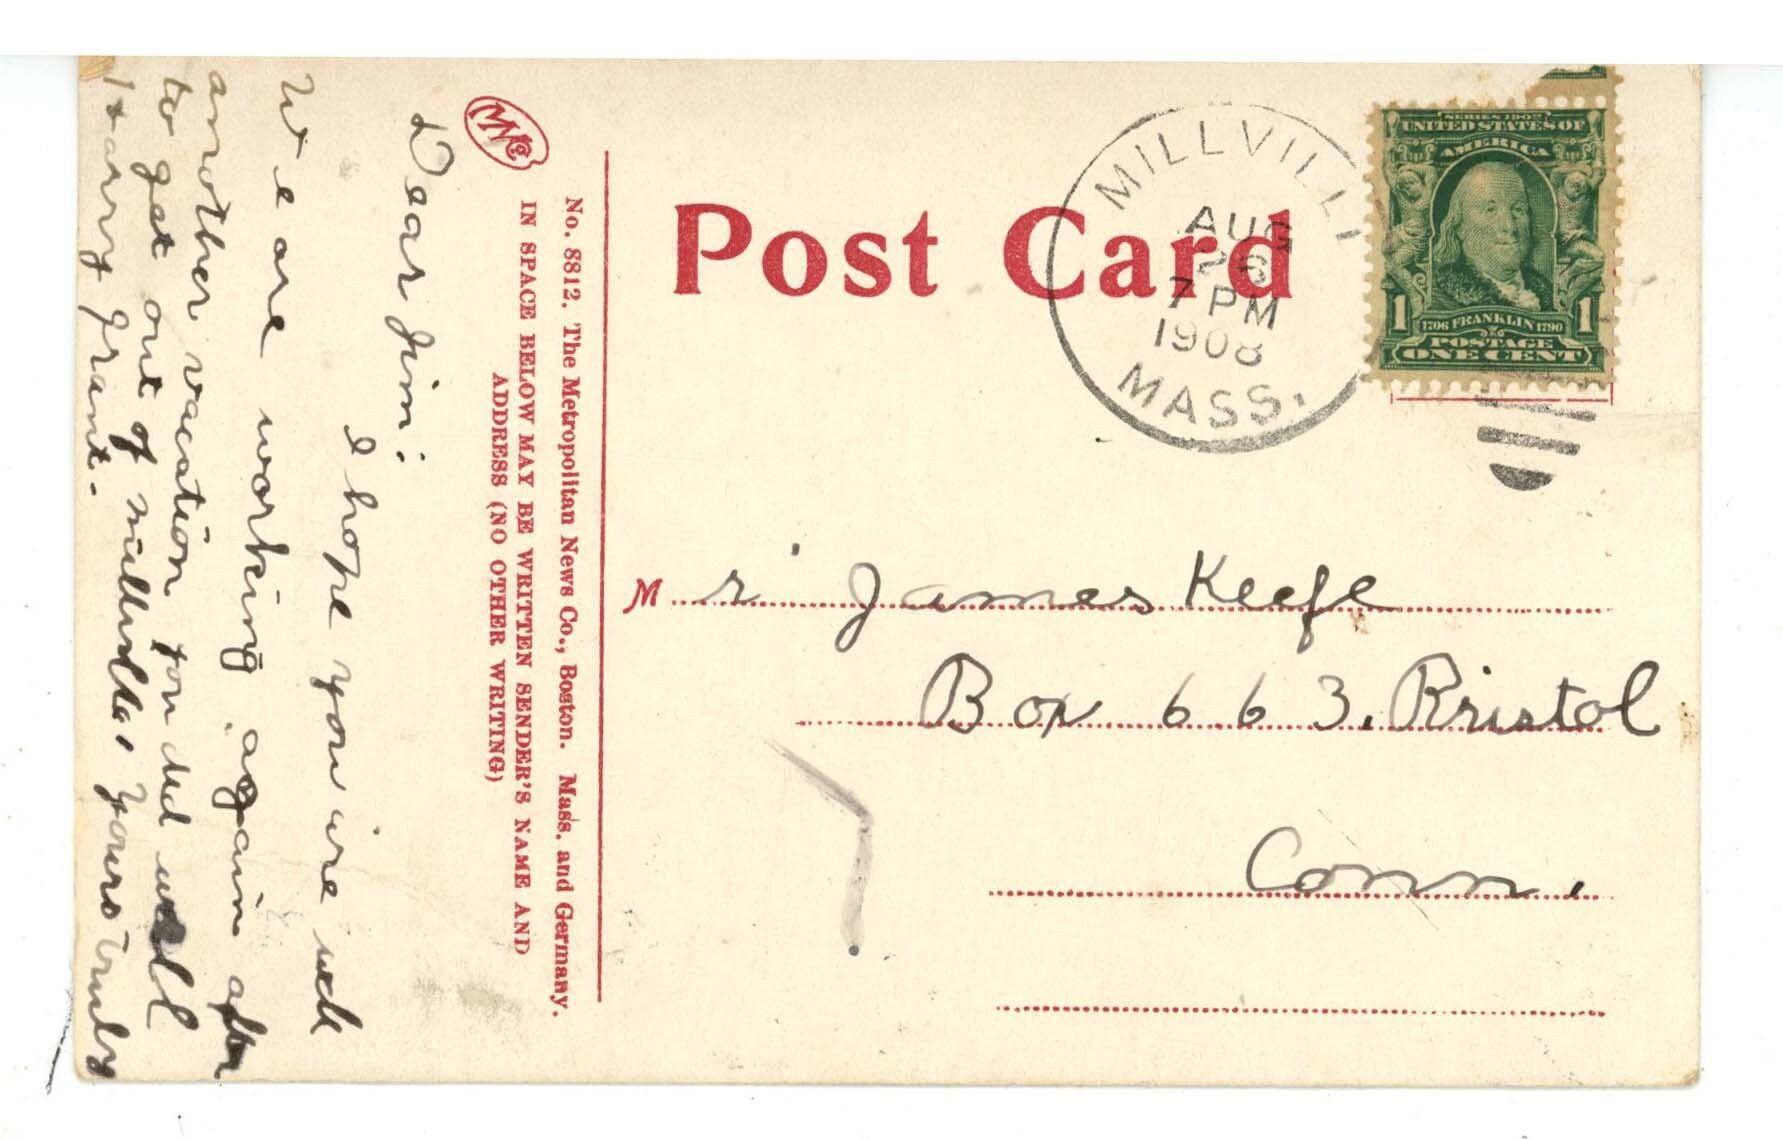 Dear Jim:
I hope you are well
We are working again after
another vacation you did well
to get out of Millville. Yours Truly
Harry Grant.
MNCo
No. 8812. The Metropolitan News Co., Boston. Mass. and Germany.
IN SPACE BELOW MAY BE WRITTEN SENDER'S NAME AND
ADDRESS (NO OTHER WRITING)
Post Card
MILLVILL
AUG
26
7 PM
1908
MASS.
SERIES 1902
UNITED STATES OF
AMERICA
1 1706 FRANKLIN 1790 1
POSTAGE
ONE CENT
Mr James Keefe
Box 663. Bristol
Conn.